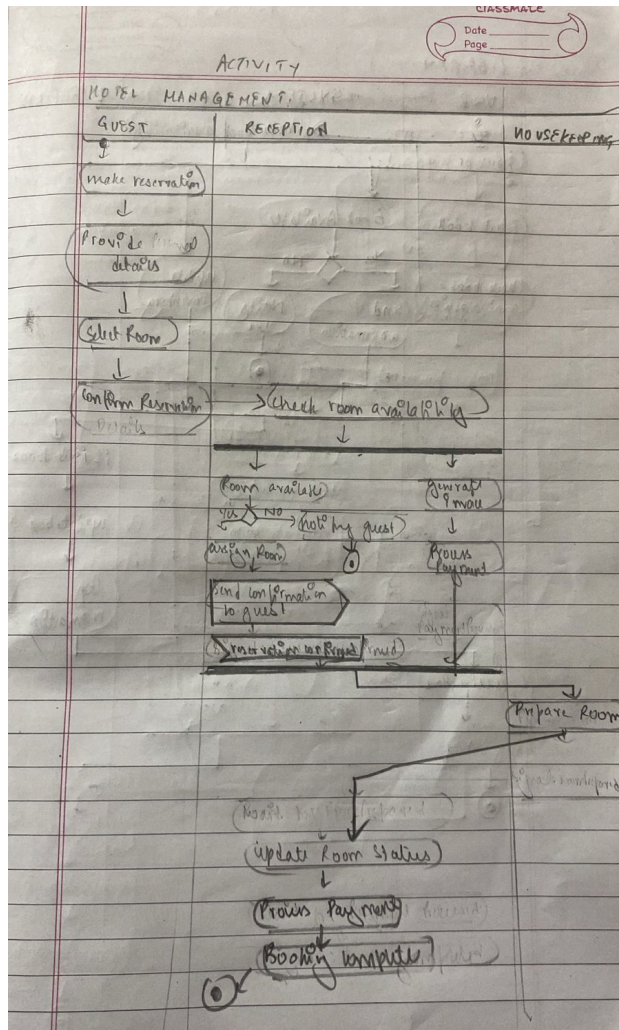 CLASSMATE
Date
Page
ACTIVITY
HOTEL MANAGEMENT.
GUEST RECEPTION HOUSEKEEPING
make reservation
Provide
details
Select Room
Confirm Reservation
Details
check room availability
Room available
Yes NO
notify guest
assign Room
Send confirmation
to guest
reservation confirmed
generate
Invoice
Process
Payment
Prepare Room
update Room Status
Process Payment
Booking complete